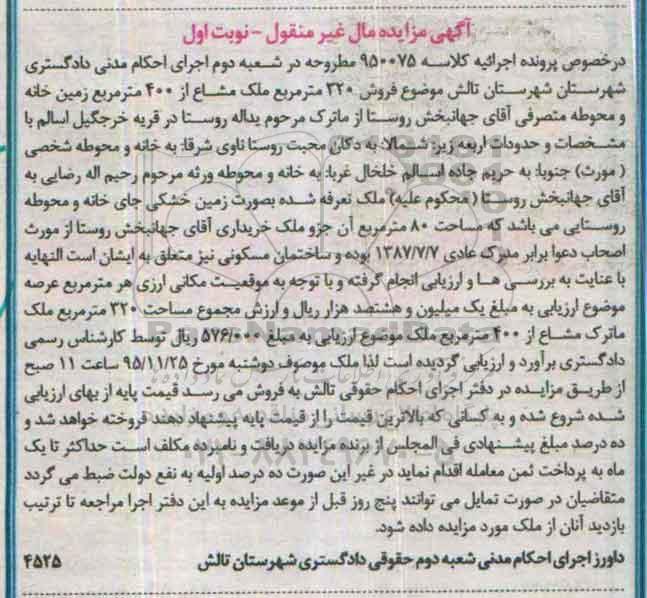 آگهی مزایده مال غیر منقول - نوبت اول
درخصوص پرونده اجرائیه کلاسه ۹۵۰۰۷۵ مطروحه در شعبه دوم اجرای احکام مدنی دادگستری
شهرستان شهرستان تالش موضوع فروش ۳۲۰ مترمربع ملک مشاع از ۴۰۰ مترمربع زمین خانه
و محوطه متصرفی آقای جهانبخش روستا از ماترک مرحوم یداله روستا در قریه خرجگیل اسالم با
مشخصات و حدودات اربعه زیر: شمالا: به دکان محبت روستا ناوی شرقا: به خانه و محوطه شخصی
( مورث) جنوبا: به حریم جاده اسالم خلخال غربا: به خانه و محوطه ورثه مرحوم رحیم اله رضایی به
آقای جهانبخش روستا ( محکوم علیه) ملک تعرفه شده بصورت زمین خشکی جای خانه و محوطه
روستایی می باشد که مساحت ۸۰ مترمربع آن جزو ملک خریداری آقای جهانبخش روستا از مورث
اصحاب دعوا برابر مدرک عادی ۱۳۸۷/۷/۷ بوده و ساختمان مسکونی نیز متعلق به ایشان است النهایه
با عنایت به بررسی ها و ارزیابی انجام گرفته و با توجه به موقعیت مکانی ارزی هر مترمربع عرصه
موضوع ارزیابی به مبلغ یک میلیون و هشتصد هزار ریال و ارزش مجموع مساحت ۳۲۰ مترمربع ملک
ماترک مشاع از ۴۰۰ مترمربع ملک موضوع ارزیابی به مبلغ ۵۷۶/۰۰۰ ریال توسط کارشناس رسمی
دادگستری برآورد و ارزیابی گردیده است لذا ملک موصوف دوشنبه مورخ ۹۵/۱۱/۲۵ ساعت ۱۱ صبح
از طریق مزایده در دفتر اجرای احکام حقوقی تالش به فروش می رسد قیمت پایه از بهای ارزیابی
شده شروع شده و به کسانی که بالاترین قیمت را از قیمت پایه پیشنهاد دهند فروخته خواهد شد و
ده درصد مبلغ پیشنهادی فی المجلس از برنده مزایده دریافت و نامبرده مکلف است حداکثر تا یک
ماه به پرداخت ثمن معامله اقدام نماید در غیر این صورت ده درصد اولیه به نفع دولت ضبط می گردد
متقاضیان در صورت تمایل می توانند پنج روز قبل از موعد مزایده به این دفتر اجرا مراجعه تا ترتیب
بازدید آنان از ملک مورد مزایده داده شود.
داورز اجرای احکام مدنی شعبه دوم حقوقی دادگستری شهرستان تالش ۴۵۲۵
ParsNamadData